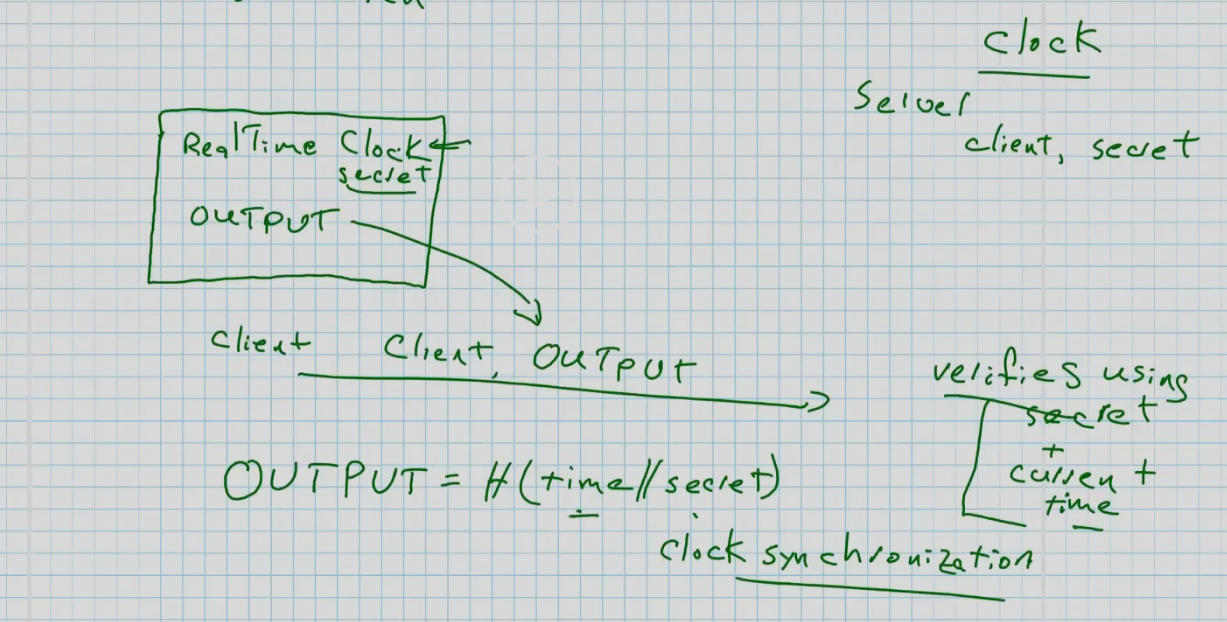 Clock
Server
client, secret
RealTime Clock
secret
OUTPUT
Client Client, OUTPUT
verifies using
secret
+
current
time
OUTPUT = H(time||secret)
clock synchronization